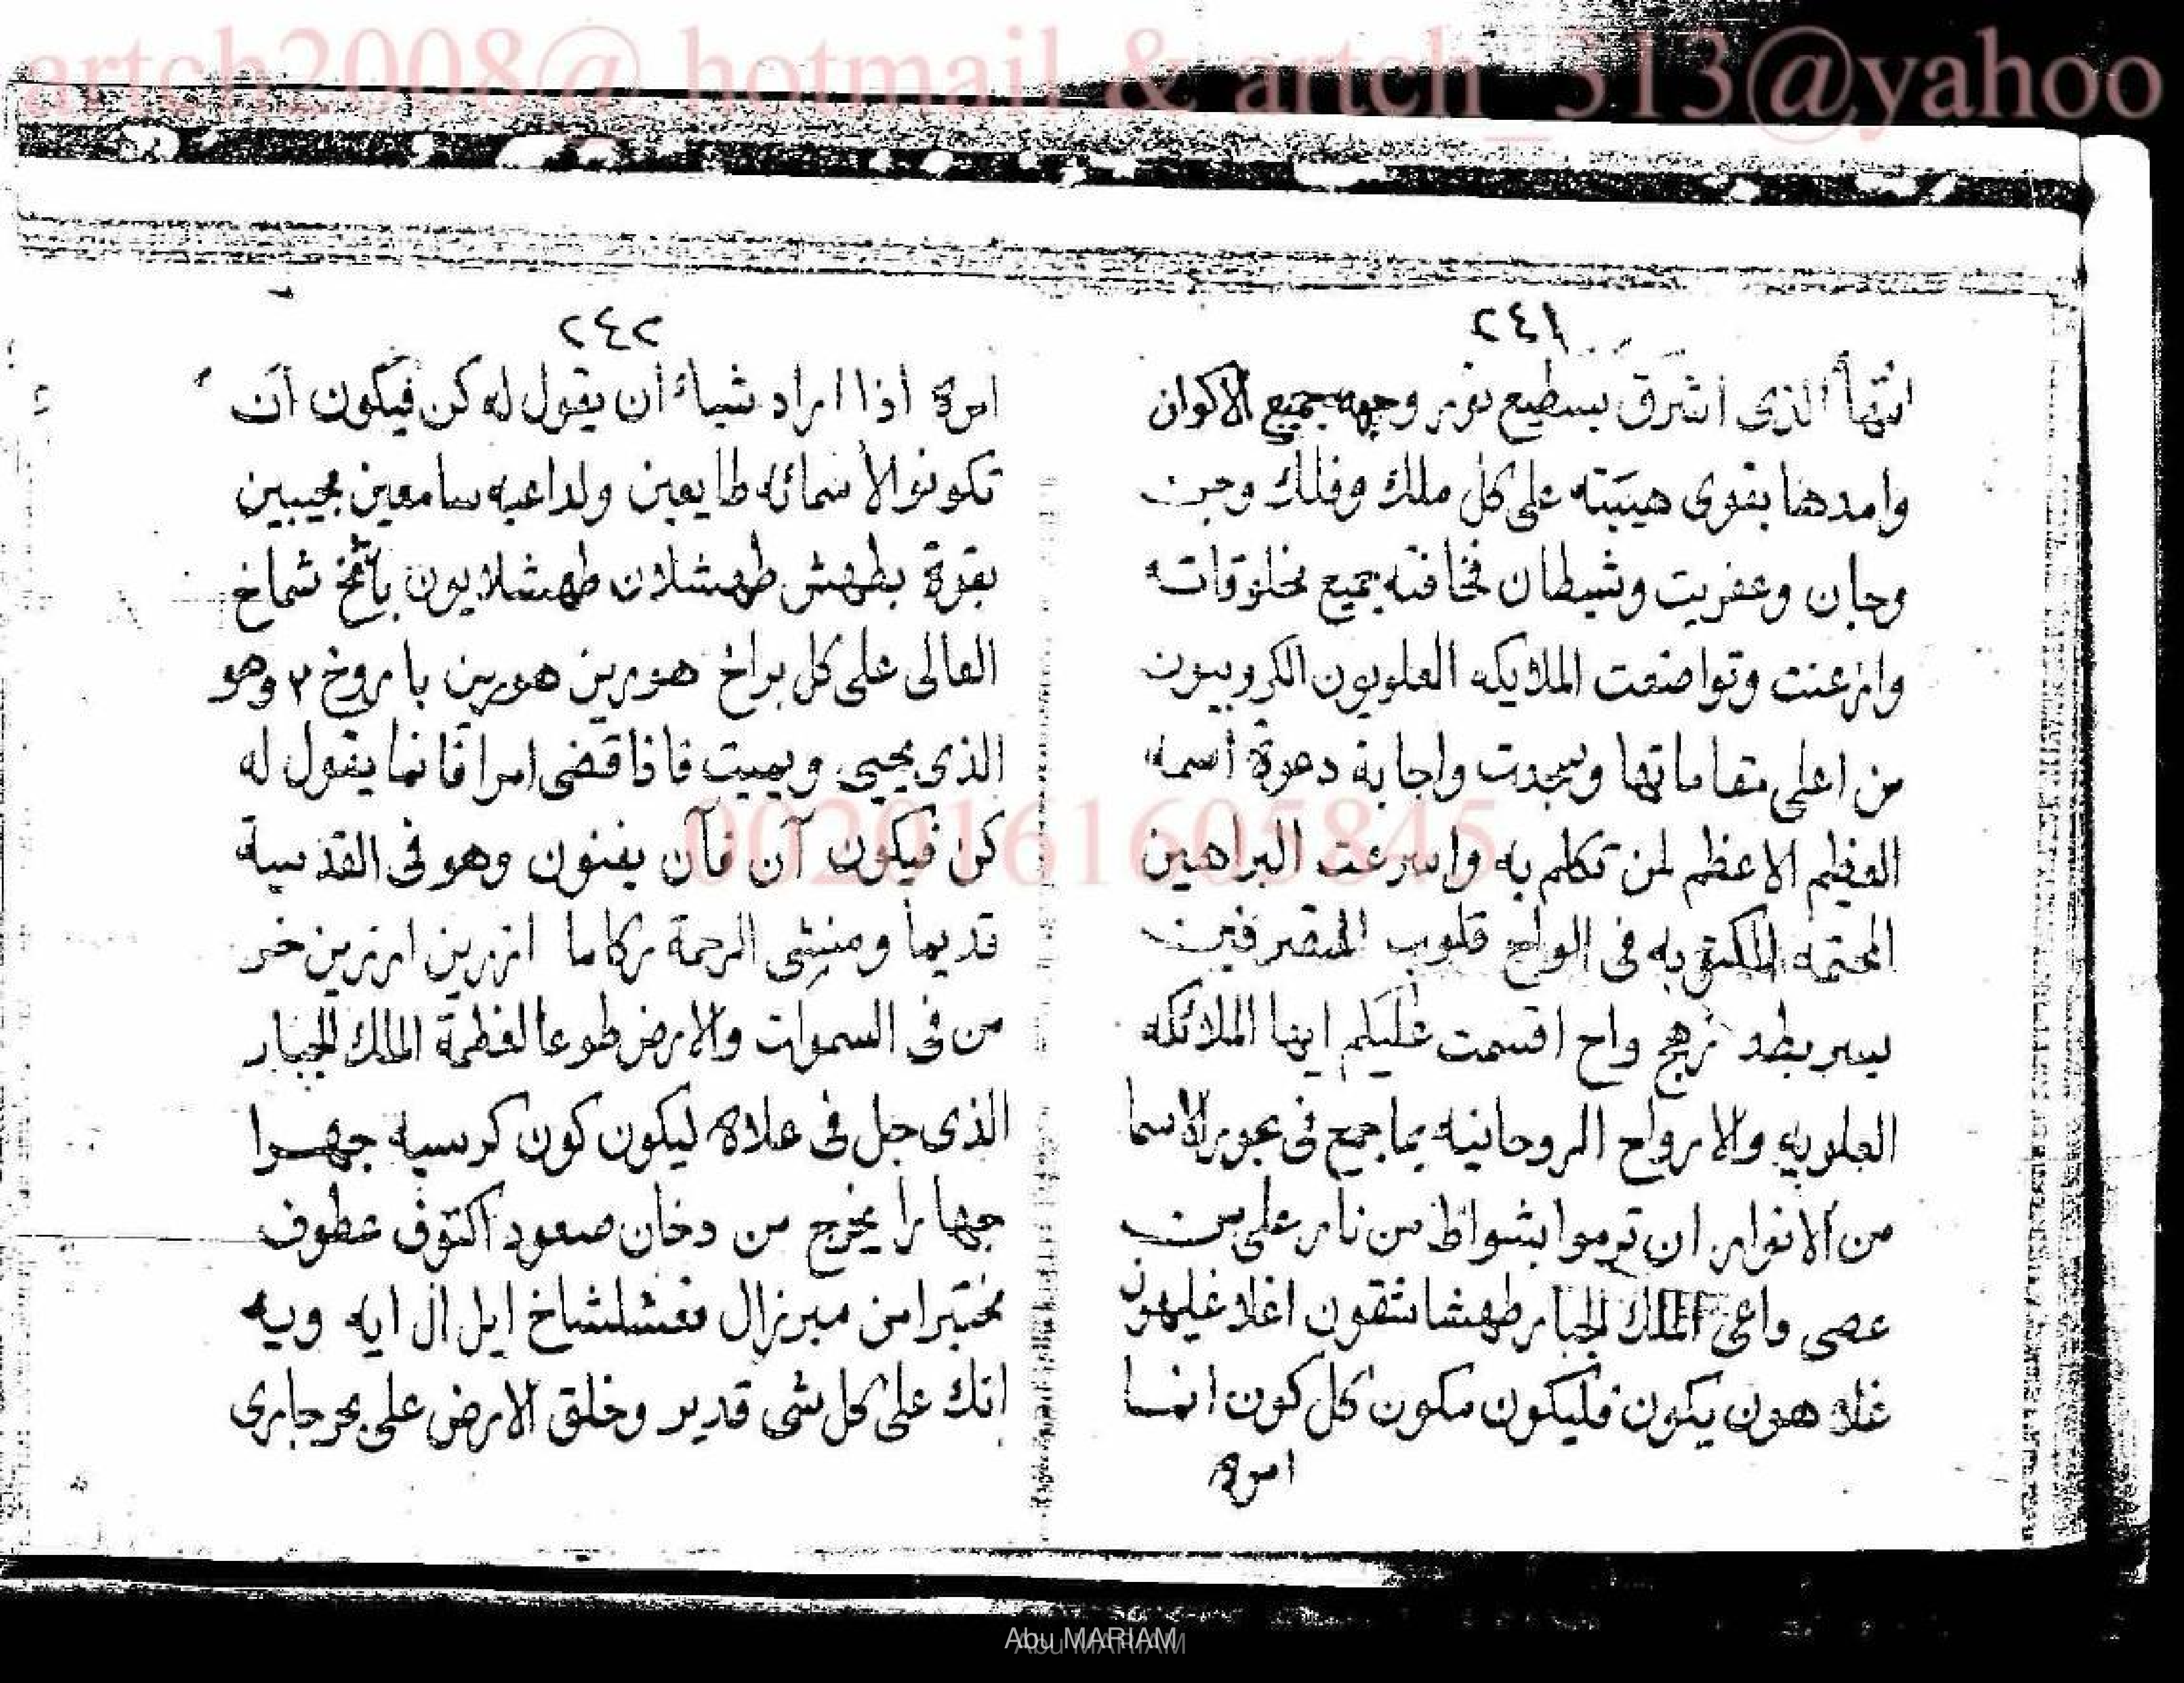 artch2008@ hotmail & artch_313@yahoo
٢٤١
انتها الذى اشرق بسطيع نور وجهه جميع الاكوان
وامدها بقوى هيبته على كل ملك وفلك وجن
وجان وعفريت وشيطان فخافته جميع مخلوقاته
وازعنت وتواضعت الملايكه العلويون الكروبيون
من اعلى مقاماتها وسجدت واجابة دعوة أسمه
العظيم الاعظم لمن تكلم به واسرعت البراهين
المحتمه فى الواح قلوب المتصرفين
اقسمت عليكم ايها الملائكه
العلويه والارواح الروحانيه بما جمع فى بحور الاسما
من الانوار ان ترموا بشواظ من نار على من
عصى واعى الملك الجبار طهشاشقون اغلا غليهون
غلا هون يكون فليكون مكون كل كون انما
امره
٢٤٢
امره اذا اراد شياء أن يقول له كن فيكون أن
تكونوا لأسمائه طايعين ولداعيه سامعين مجيبين
بقوة بطهش طهشلان طهشلايون باتمخ شماخ
العالى على كل براخ هورين هورين باروخ ٢ وهو
الذى يحيى ويميت فاذا قضى امرا فانما يقول له
كن فيكون آن فآن يفنون وهو فى القدسية
قديما ومنشى الرحمة ركاما ازرين ارزين خر
من فى السموات والارض طوعا لعظمة الملك الجبار
الذى جل فى علاه ليكون كون كرسيه جهرا
جهارا يخرج من دخان صعود اكتوف عطوف
مختبرا من ميرزال مقشلشاخ ايل ال ايه ويه
انك على كل شى قدير وخلق الارض على بحر جارى
0020161605845
Abu MARIAM